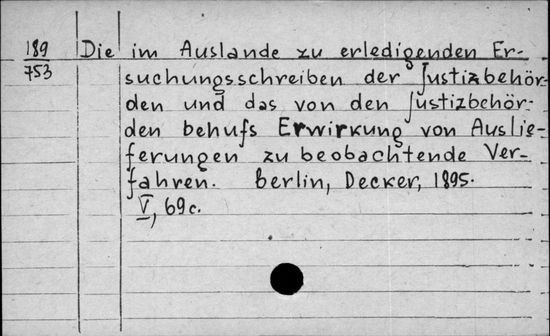 189 Die im Auslande zu erledigenden Er-
753 suchungsschreiben der Justizbehör-
den und das von den Justizbehör-
den behufs Erwirkung von Auslie-
ferungen zu beobachtende Ver-
fahren. Berlin, Decker, 1895.
V, 69c.